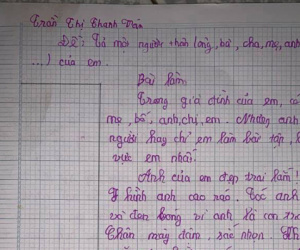 Trần Thị Thanh Vân
Đề: Tả một người thân (ông, bà, cha, mẹ, anh
...) của em.
Bài làm
Trong gia đình của em, có
mẹ, bố, anh, chị, em. Nhưng anh
người hay chỉ em làm bài tập,
vực em nhất.
Anh của em đẹp trai lắm!
hình anh cao ráo. Tóc anh
và đen bóng vì anh là con
Chân mày đậm, sắc nhọn.